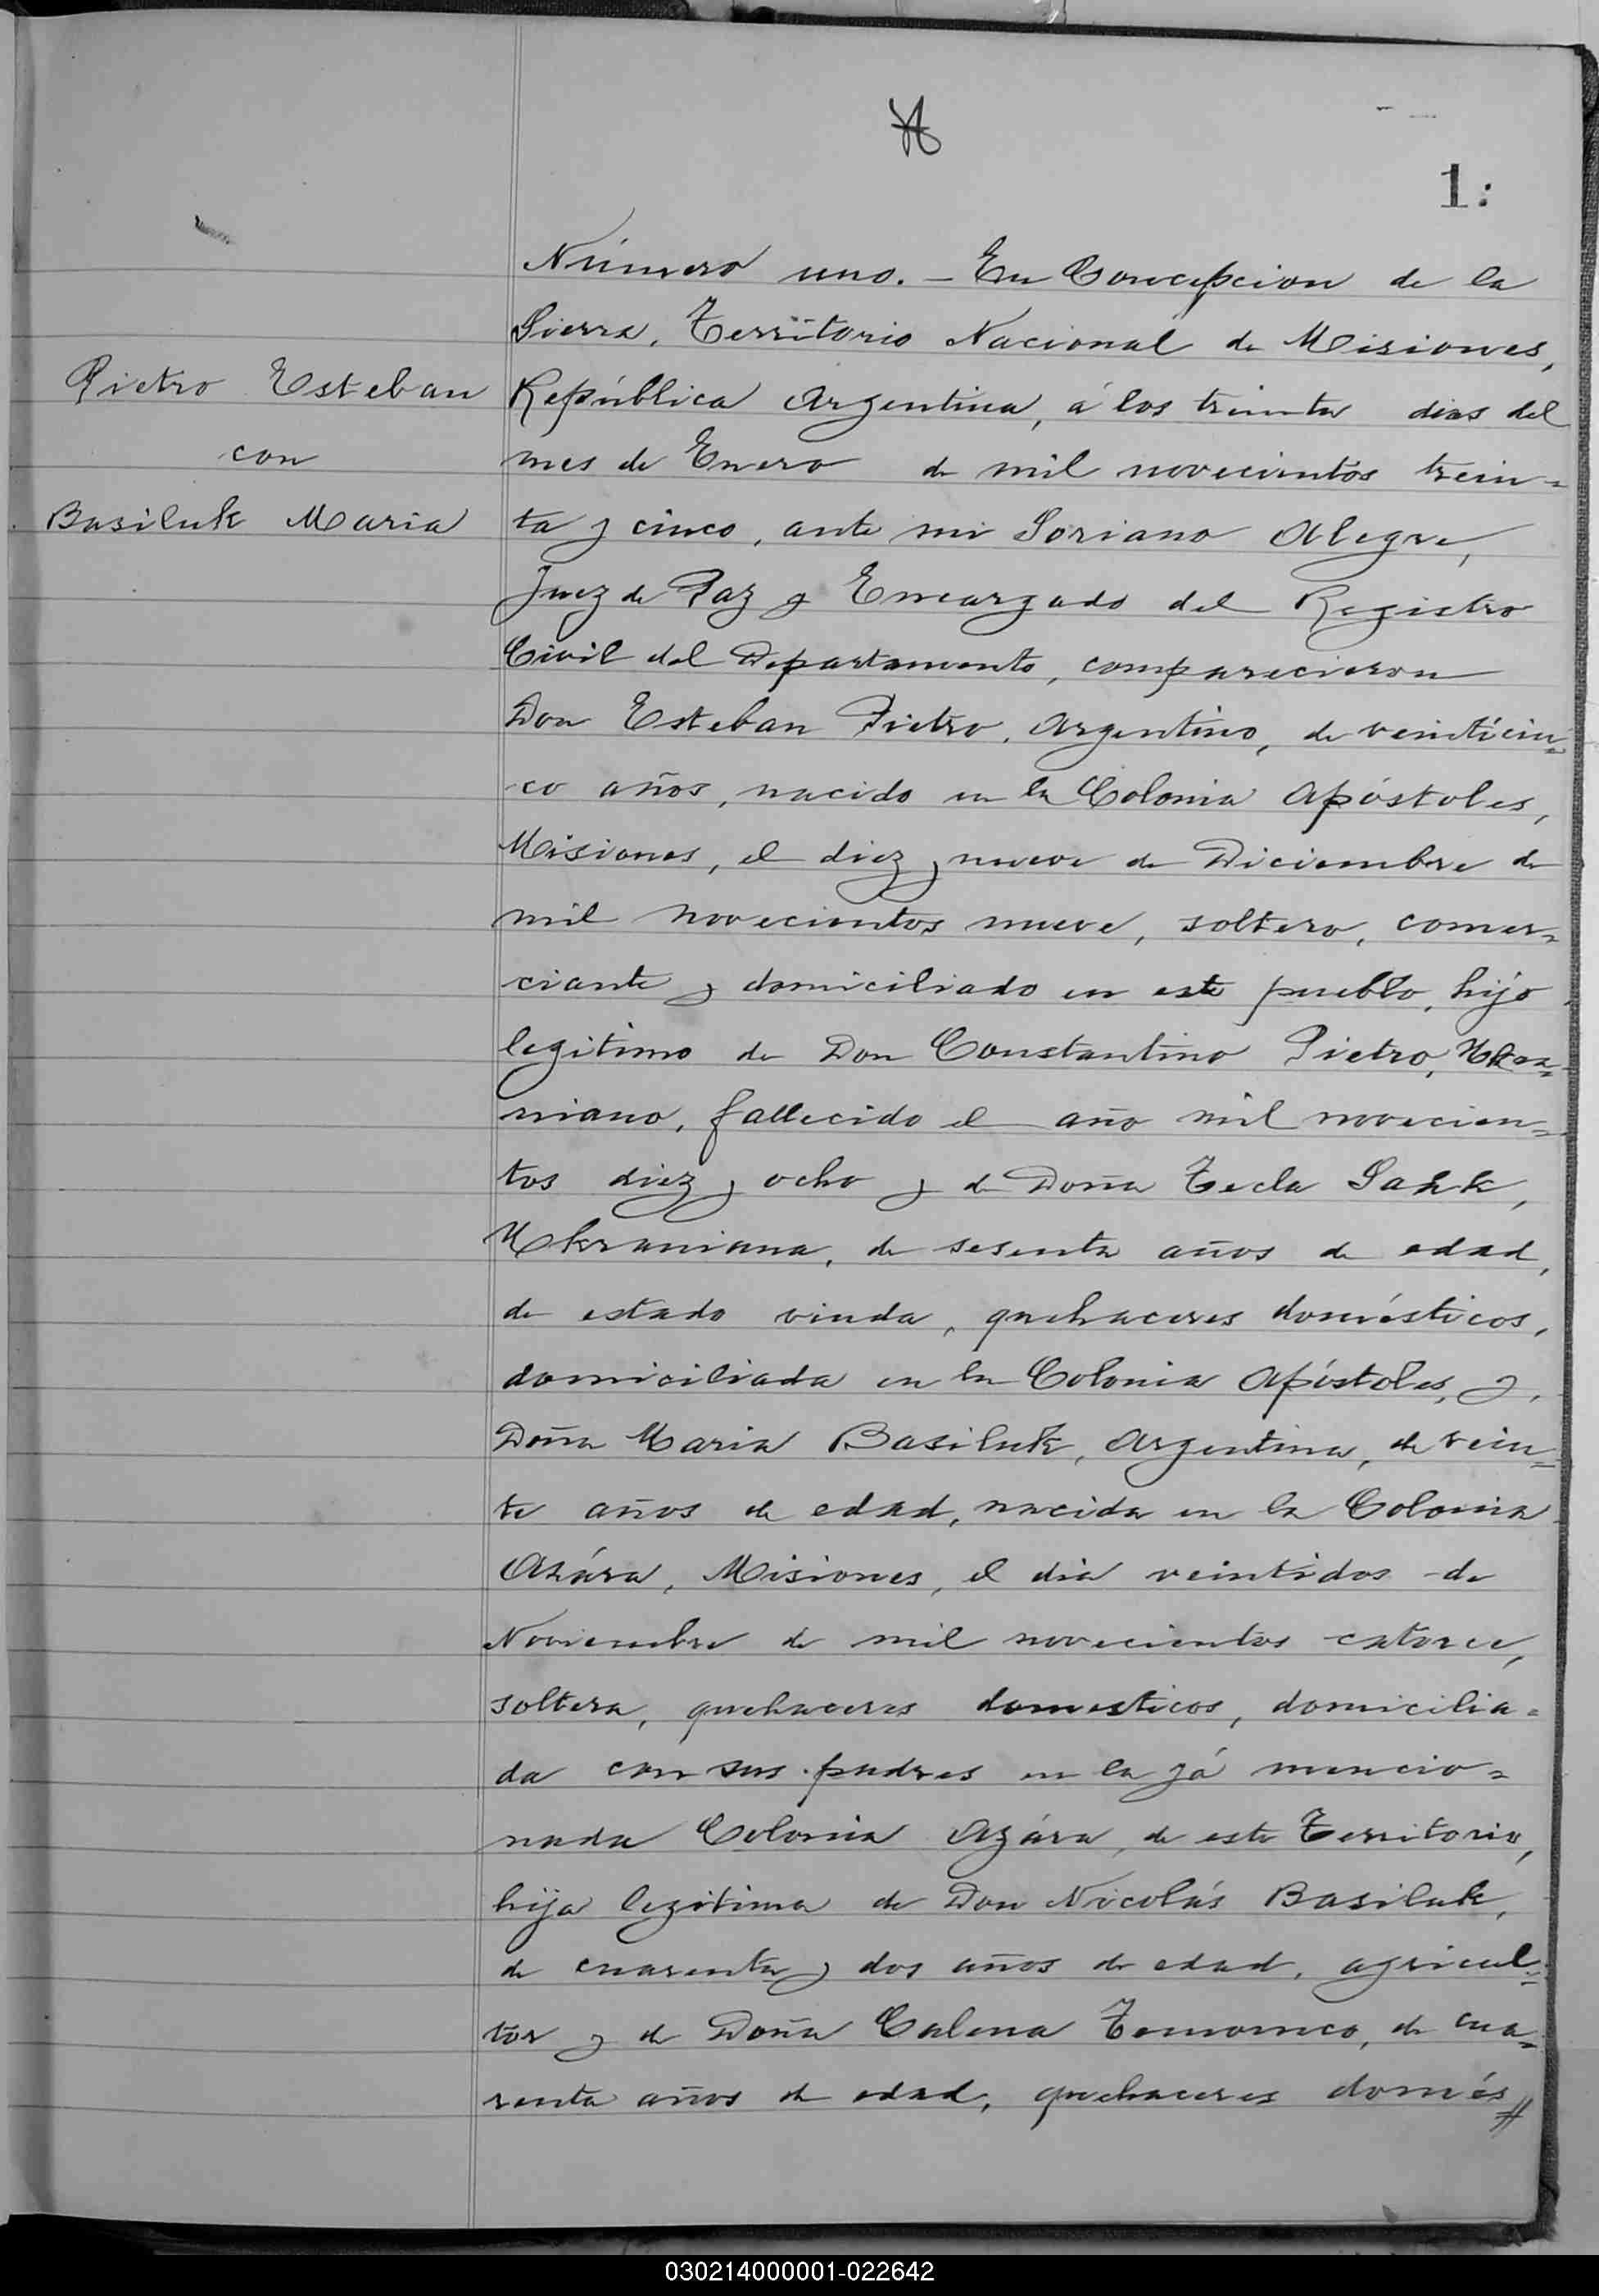 1:
Número uno. — En Concepcion de la
Sierra, Territorio Nacional de Misiones,
Pietro Esteban
con
Basiluk Maria
República Argentina, á los treinta dias del
mes de Enero de mil novecientos trein=
ta y cinco, ante mi Soriano Alegre,
Juez de Paz y Encargado del Registro
Civil del Departamento, comparecieron
Don Esteban Pietro, Argentino, de veinticin=
co años, nacido en la Colonia Apóstoles,
Misiones, el diez y nueve de Diciembre de
mil novecientos nueve, soltero, comer=
ciante y domiciliado en este pueblo, hijo
legitimo de Don Constantino Pietro, Ukra=
niano, fallecido el año mil novecien=
tos diez y ocho y de Doña Tecla
Ukraniana, de sesenta años de edad,
de estado viuda, quehaceres domésticos,
domiciliada en la Colonia Apóstoles, y,
Doña Maria Basiluk, Argentina, de vein=
te años de edad, nacida en la Colonia
Azára, Misiones, el dia veintidos de
Noviembre de mil novecientos catorce,
soltera, quehaceres domesticos, domicilia=
da con sus padres en la yá mencio=
nada Colonia Azára, de este Territorio,
hija legitima de Don Nicolás Basiluk,
de cuarenta y dos años de edad, agricul=
tor y de Doña Calena de cua=
renta años de edad, quehaceres domés
030214000001-022642